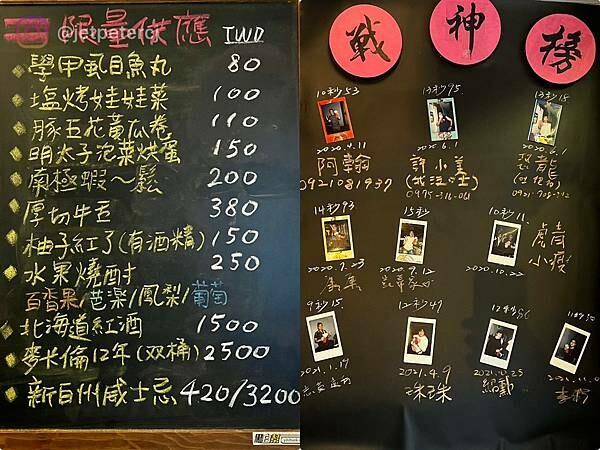 @jetpeter
限量供應 TWD
學甲虱目魚丸 80
塩烤娃娃菜 100
豚五花黃瓜卷 110
明太子泡菜烘蛋 150
南極蝦～鬆 200
厚切牛舌 380
柚子紅了(有酒精) 150
水果燒酎 250
百香果/芭樂/鳳梨/葡萄
北海道紅酒 1500
麥卡倫12年(双桶) 2500
新白州威士忌 420/3200
戰神榜
10秒53
13秒95
13秒18
2020.4.11
2020.6.1
阿翰
許小美
恐龍
14秒93
15秒
10秒11
2020.7.23
2020.9.12
2020.10.22
小疫
9秒15
12秒47
2021.1.17
2021.4.9
珠珠